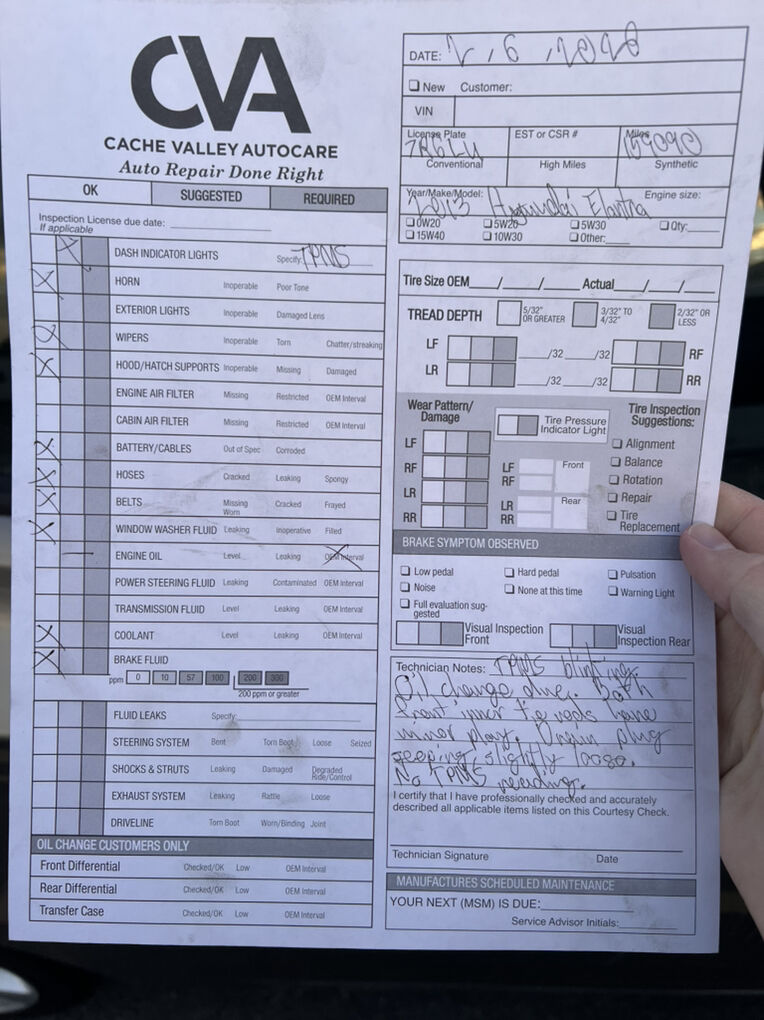 CVA
CACHE VALLEY AUTOCARE
Auto Repair Done Right
OK SUGGESTED REQUIRED
Inspection License due date:
If applicable
DASH INDICATOR LIGHTS Specify: TPMS
HORN Inoperable Poor Tone
EXTERIOR LIGHTS Inoperable Damaged Lens
WIPERS Inoperable Torn Chatter/streaking
HOOD/HATCH SUPPORTS Inoperable Missing Damaged
ENGINE AIR FILTER Missing Restricted OEM Interval
CABIN AIR FILTER Missing Restricted OEM Interval
BATTERY/CABLES Out of Spec Corroded
HOSES Cracked Leaking Spongy
BELTS Missing Cracked Frayed
Worn
WINDOW WASHER FLUID Leaking Inoperative Filled
ENGINE OIL Level Leaking OEM Interval
POWER STEERING FLUID Leaking Contaminated OEM Interval
TRANSMISSION FLUID Level Leaking OEM Interval
COOLANT Level Leaking OEM Interval
BRAKE FLUID
ppm 0 10 57 100 200 300
200 ppm or greater
FLUID LEAKS Specify:
STEERING SYSTEM Bent Torn Boot Loose Seized
SHOCKS & STRUTS Leaking Damaged Degraded
Ride/Control
EXHAUST SYSTEM Leaking Rattle Loose
DRIVELINE Torn Boot Worn/Binding Joint
OIL CHANGE CUSTOMERS ONLY
Front Differential Checked/OK Low OEM Interval
Rear Differential Checked/OK Low OEM Interval
Transfer Case Checked/OK Low OEM Interval
DATE:
New Customer:
VIN
License Plate EST or CSR # Miles
Conventional High Miles Synthetic
Year/Make/Model: Engine size:
2013 Hyundai Elantra
0W20 5W20 5W30 Qty:
15W40 10W30 Other:
Tire Size OEM / / Actual / /
TREAD DEPTH 5/32" OR GREATER 3/32" TO 4/32" 2/32" OR LESS
LF /32 /32 RF
LR /32 /32 RR
Wear Pattern/
Damage
LF
RF
LR
RR
Tire Pressure
Indicator Light
LF Front
RF
LR Rear
RR
Tire Inspection
Suggestions:
Alignment
Balance
Rotation
Repair
Tire
Replacement
BRAKE SYMPTOM OBSERVED
Low pedal Hard pedal Pulsation
Noise None at this time Warning Light
Full evaluation sug-
gested
Visual Inspection
Front
Visual
Inspection Rear
Technician Notes: TPMS blinking.
Oil change due. Both
front inner tie rods have
minor play. Drain plug
seeping, slightly loose.
No TPMS reading.
I certify that I have professionally checked and accurately
described all applicable items listed on this Courtesy Check.
Technician Signature Date
MANUFACTURES SCHEDULED MAINTENANCE
YOUR NEXT (MSM) IS DUE:
Service Advisor Initials: